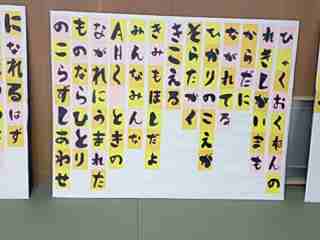 ひゃくおくねんの
れきしがいまも
からだに
ながれてる
ひかりのこえが
そらたかく
きこえる
きみもほしだよ
みんなみんな
AH〜 ときの
ながれにうまれた
ものならひとり
のこらずしあわせ
になれるはず